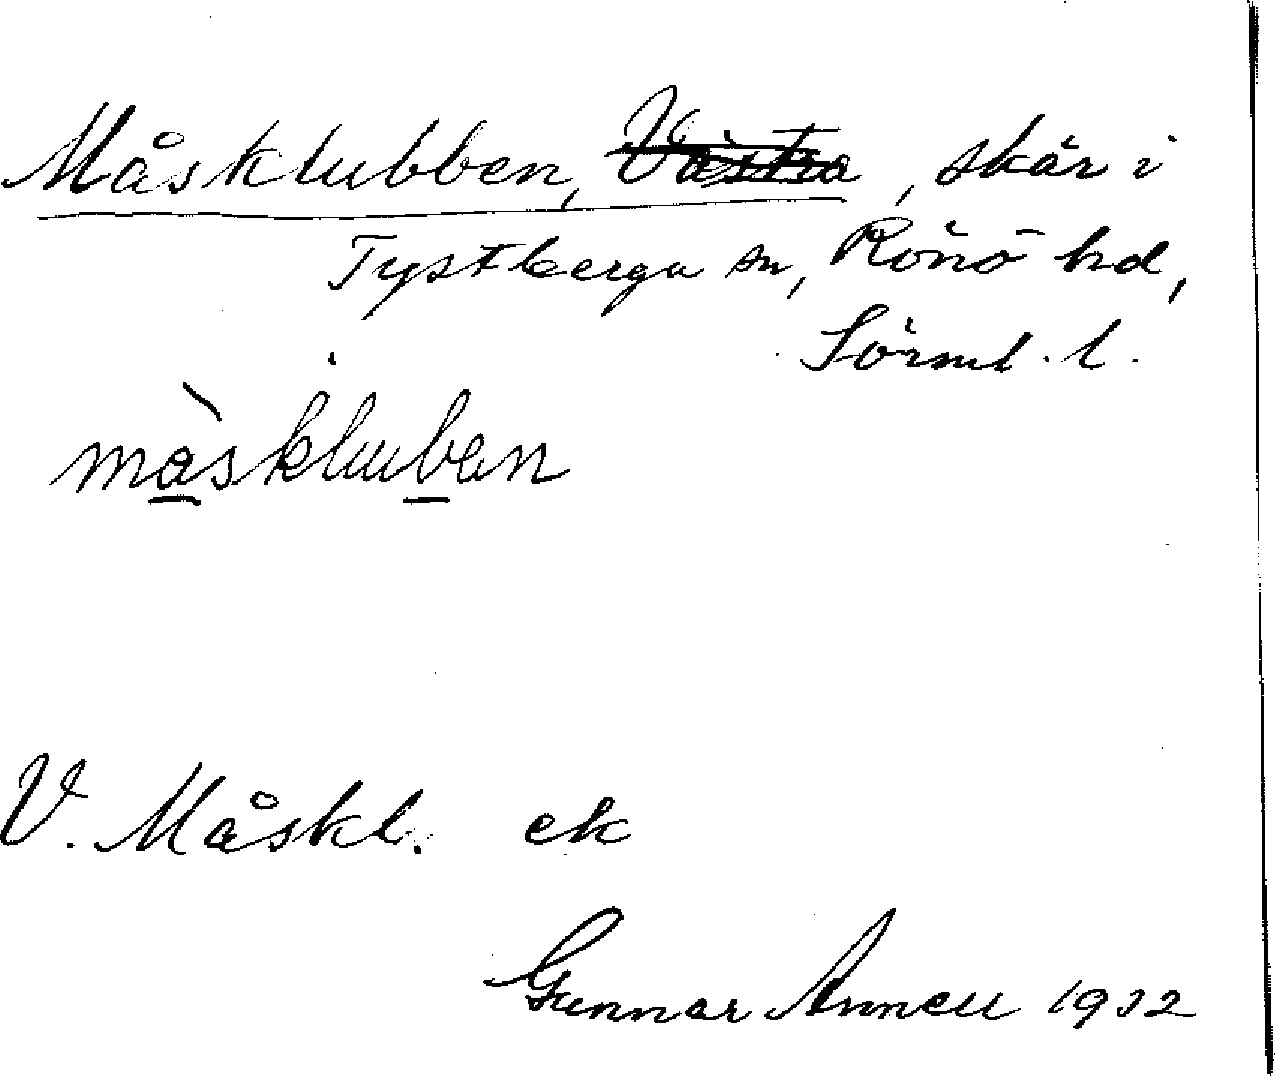 Måsklubben, Västra, skär i
Tystberga sn, Rönö hd,
Sörml. l.
måskluban
V. Måskl. ek
Gunnar Annell 1932